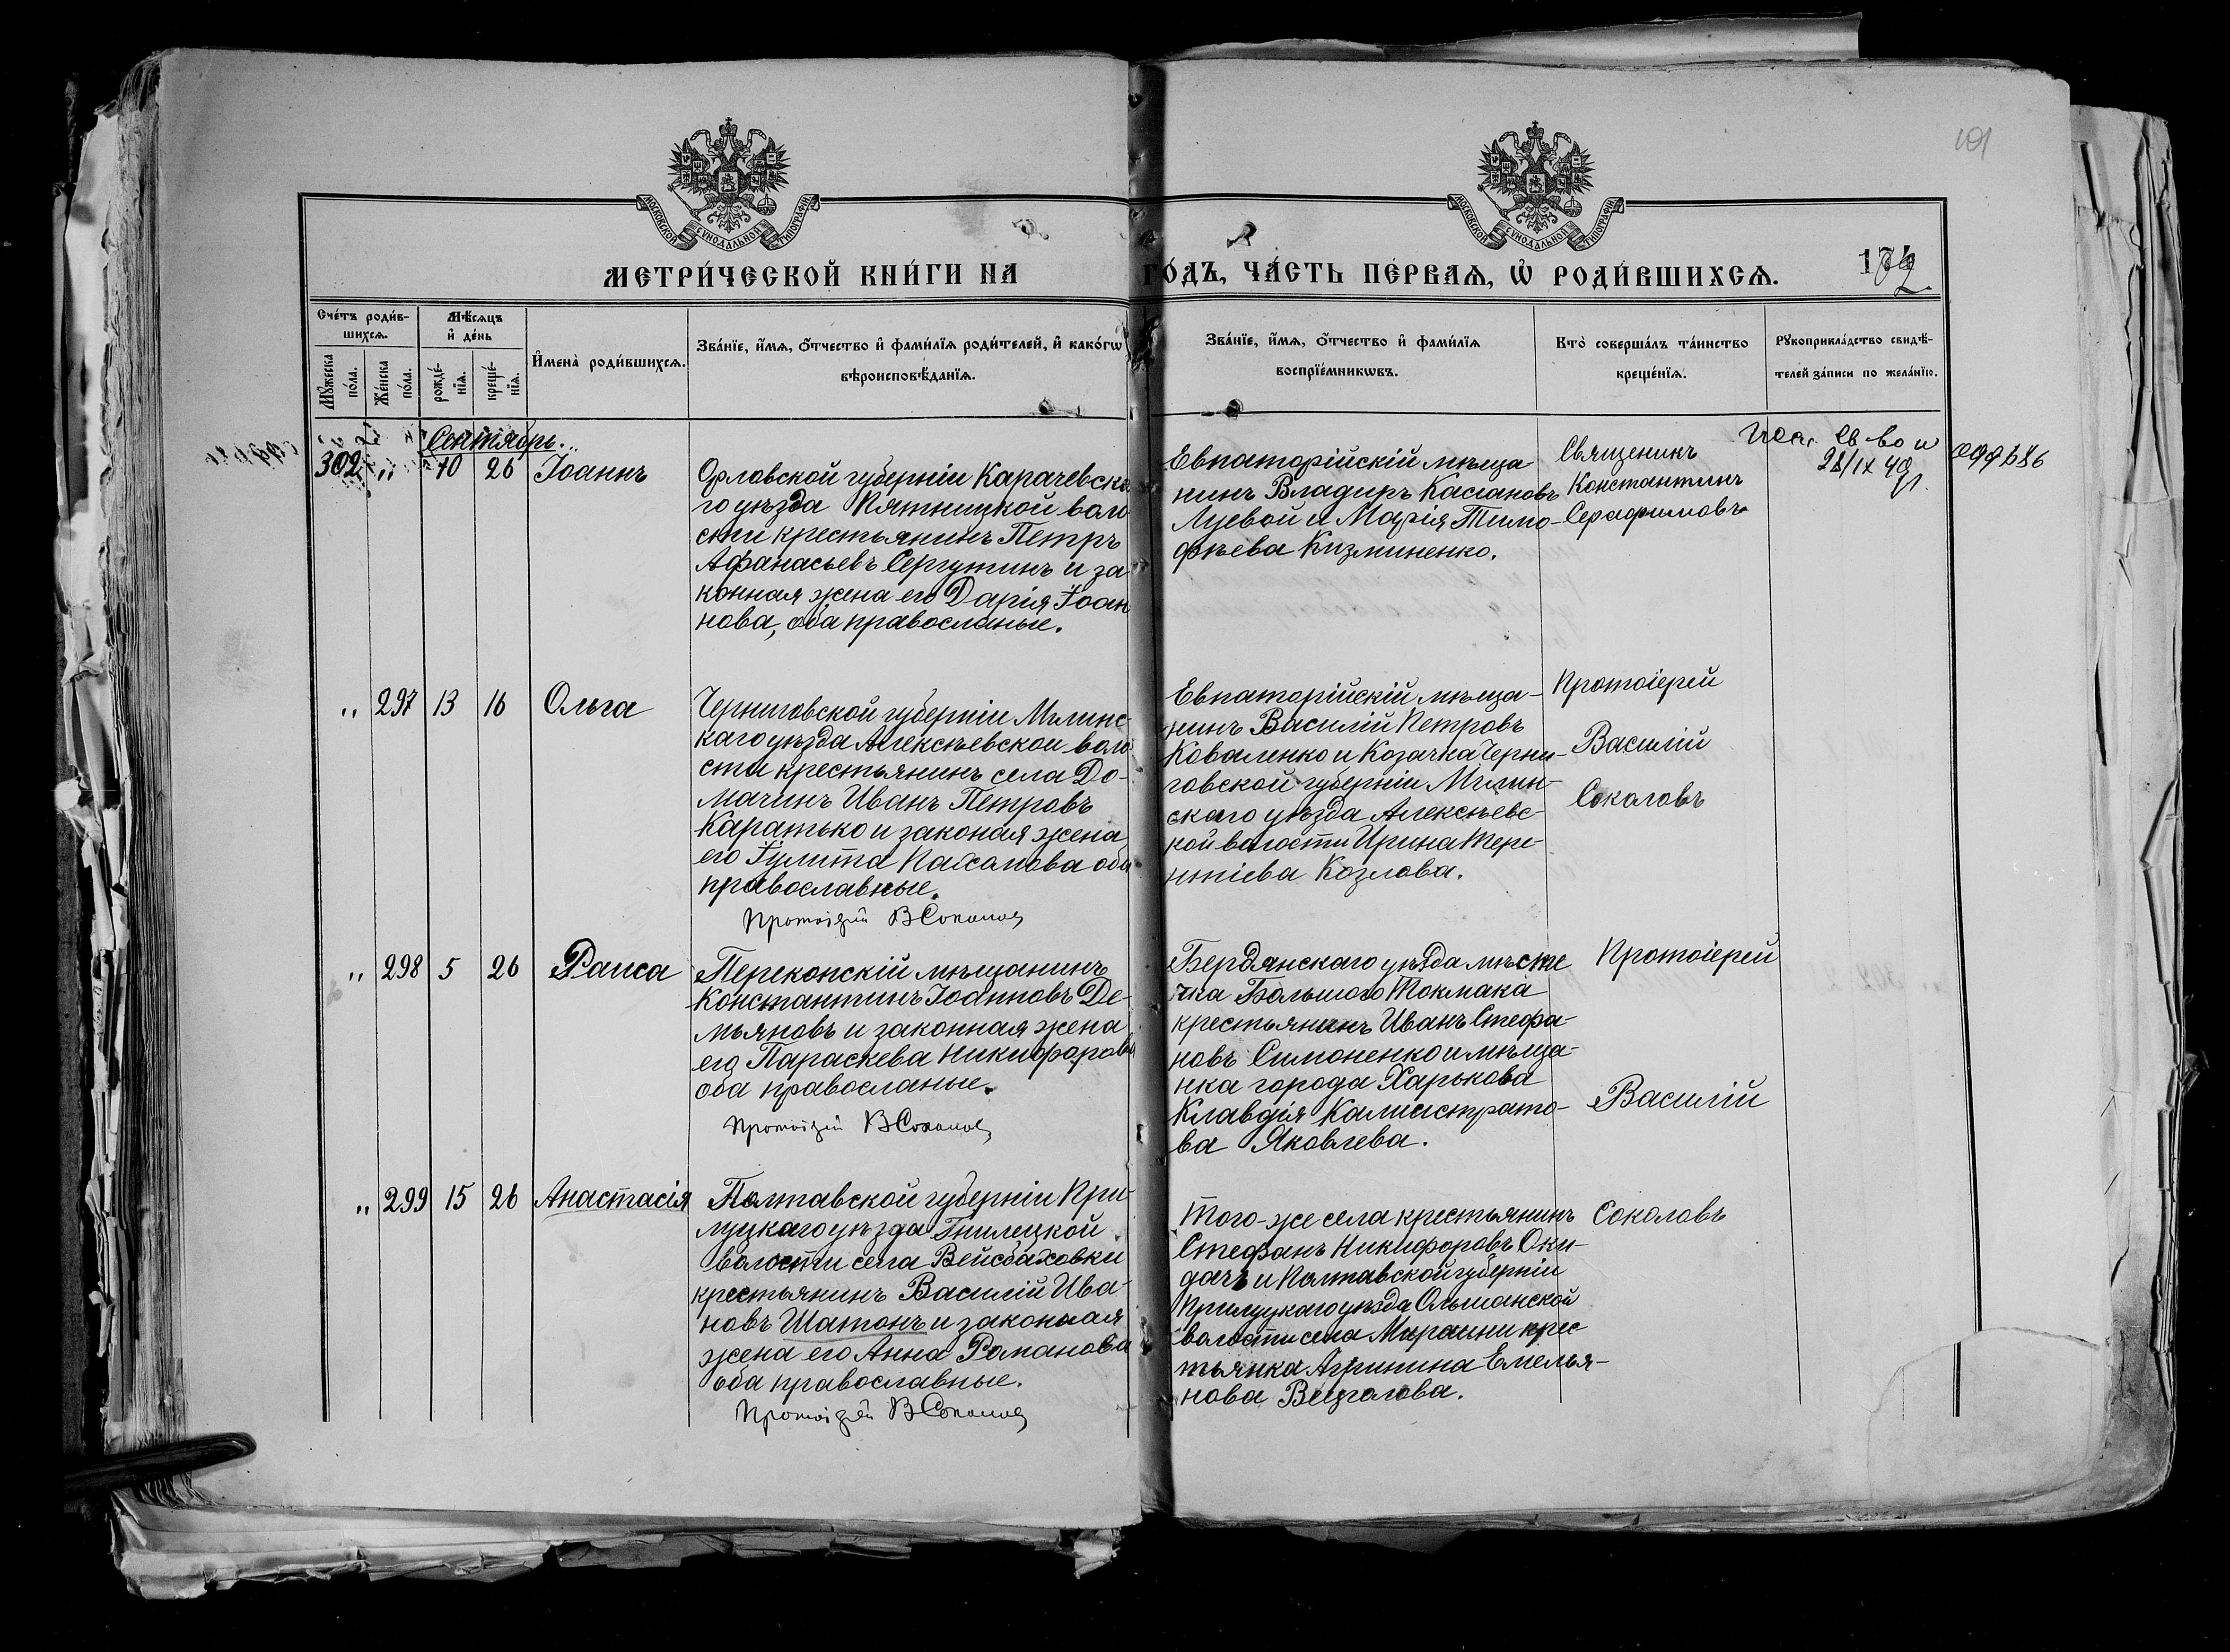 101
МОСКОВСКОЙ СѴНОДАЛЬНОЙ ТИПОГРАФІИ
МОСКОВСКОЙ СѴНОДАЛЬНОЙ ТИПОГРАФІИ
МЕТРИ́ЧЕСКОЙ КНИ́ГИ НА ГО́ДЪ, ЧА́СТЬ ПЕ́РВАѦ, Ѡ҆ РОДИ́ВШИХСѦ.
Сче́тъ роди́в-
шихсѧ.
Мꙋ́жеска
по́ла.
Же́нска
по́ла.
Мѣ́сѧцъ
и҆ де́нь
рожде́-
нїѧ.
креще́-
нїѧ.
И҆мена̀ роди́вшихсѧ.
Зва́нїе, и҆́мѧ, ѻ҆́тчество и҆ фами́лїѧ роди́телей, и҆ како́гѡ
вѣроисповѣ́данїѧ.
Зва́нїе, и҆́мѧ, ѻ҆́тчество и҆ фами́лїѧ
воспрїе́мникѡвъ.
Кто̀ соверша́лъ та́инство
креще́нїѧ.
Рꙋкоприкла́дство свидѣ́-
телей за́писи по жела́нїю.
Сентябрь.
302 " 10 26 Іоаннъ
Орловской губерніи Карачевска
го уѣзда Пятницкой воло
сти крестьянинъ Петръ
Афанасьевъ Сергутинъ и за
конная жена его Дарія Іоан
нова, оба православные.
Евпаторійскій мѣща
нинъ Владиръ Касіановъ
Луевой и Марія Тимо-
фѣева Кизминенко.
Священикъ
Константинъ
Серафимовъ
св во
28/IX 49
099686
" 297 13 16 Ольга
Черниговской губерніи Мглинс-
каго уѣзда Алексѣевской воло
сти крестьянинъ села До-
мачинъ Иванъ Петровъ
Каратько и законая жена
его Іулитта Пахомова оба
православные.
Протоіерей В Соколов
Евпаторійскій мѣща-
нинъ Василій Петровъ
Коваленко и Козачка Черни-
говской губерніи Мглин-
скаго уѣзда Алексѣевс-
кой волости Ирина Тере-
нтіева Козлова.
Протоіерей
Василій
Соколовъ
" 298 5 26 Раиса
Перекопскій мѣщанинъ
Константинъ Іоанновъ Де-
мьяновъ и законная жена
его Параскева Никифорова
оба православные.
Протоіерей В Соколов
Бердянскаго уѣзда мѣсте
чка Большого Токмака
крестьянинъ Иванъ Стефа-
новъ Симоненко и мѣща-
нка города Харькова
Клавдія Калистрато-
ва Яковлева.
Протоіерей
Василій
" 299 15 26 Анастасія
Полтавской губерніи При-
луцкаго уѣзда Гнилецкой
волости села Вейсбаховки
крестьянинъ Василій Ива-
новъ Шатонъ и законная
жена его Анна Романова
оба православные.
Протоіерей В Соколов
Того-же села крестьянинъ
Стефанъ Никифоровъ Оки-
дачъ и Полтавской губерніи
Прилуцкаго уѣзда Ольшанской
волости села Мирашни крес
тьянка Агрипина Емелья-
нова
Соколовъ